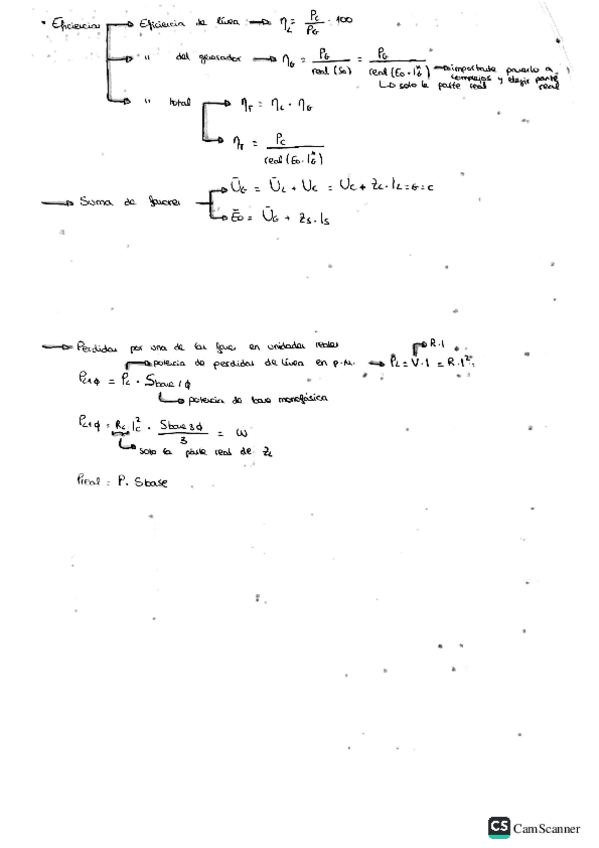 • Eficiencia → Eficiencia de línea → η_L = P_C / P_G · 100
→ " del generador → η_G = P_G / real (S_0) = P_G / real (E_0 · I_G*) → importante pasarlo a complejos y elegir parte real
↳ solo la parte real
→ " total → η_T = η_L · η_G
→ η_T = P_C / real (E_0 · I_G*)
→ Suma de fasores → Ū_G = Ū_L + U_C = U_C + Z_L · I_L=G=C
→ Ē_0 = Ū_G + Z_S · I_S
→ Perdidas por una de las fases en unidades reales
→ R · I
→ potencia de perdidas de línea en p.u. → P_L = V · I = R · I²
P_L1ϕ = P_L · Sbase 1ϕ
↳ potencia de base monofásica
P_L1ϕ = R_L I_C² · Sbase 3ϕ / 3 = W
↳ solo la parte real de Z_L
Preal = P · Sbase
CS CamScanner